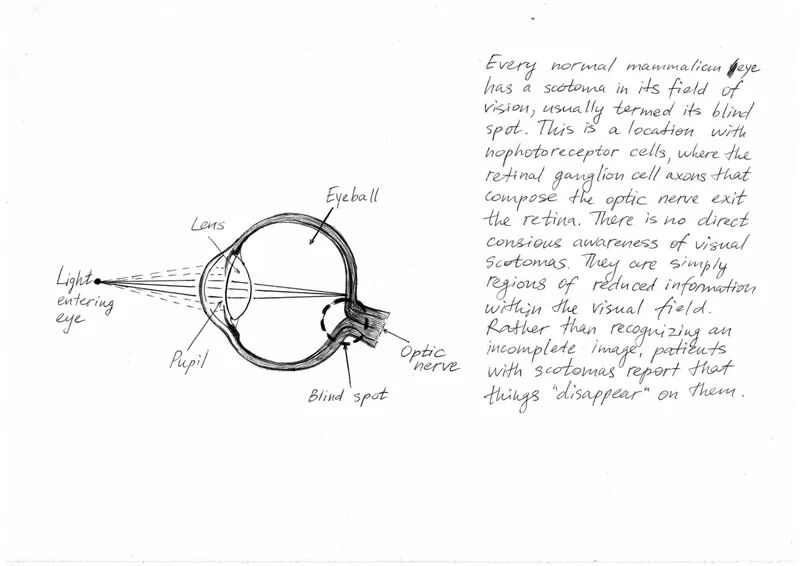 Every normal mammalian eye
has a scotoma in its field of
vision, usually termed its blind
spot. This is a location with
nophotoreceptor cells, where the
retinal ganglion cell axons that
compose the optic nerve exit
the retina. There is no direct
consious awareness of visual
scotomas. They are simply
regions of reduced information
within the visual field.
Rather than recognizing an
incomplete image, patients
with scotomas report that
things "disappear" on them.
Eyeball
Lens
Light
entering
eye
Pupil
Optic
nerve
Blind spot